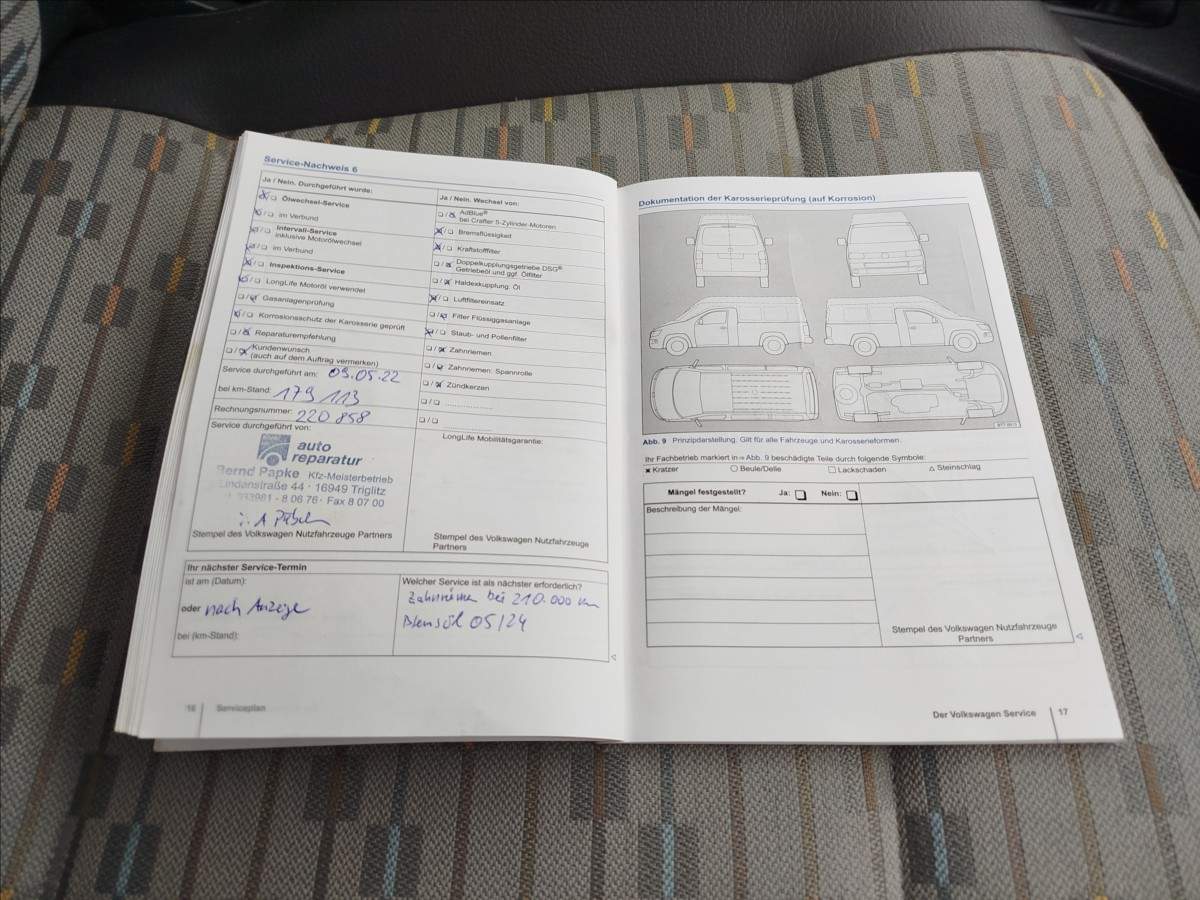 Service-Nachweis 6
Ja / Nein. Durchgeführt wurde:
Ölwechsel-Service
im Verbund
Intervall-Service
inklusive Motorölwechsel
im Verbund
Inspektions-Service
LongLife Motoröl verwendet
Gasanlagenprüfung
Korrosionsschutz der Karosserie geprüft
Reparaturempfehlung
Kundenwunsch
(auch auf dem Auftrag vermerken)
Service durchgeführt am: 09.05.22
bei km-Stand: 179 113
Rechnungsnummer: 220 858
Service durchgeführt von:
auto
reparatur
Bernd Papke Kfz-Meisterbetrieb
Lindenstraße 44 · 16949 Triglitz
033981 - 8 06 76 · Fax 8 07 00
i. A
Stempel des Volkswagen Nutzfahrzeuge Partners
Ja / Nein. Wechsel von:
AdBlue®
bei Crafter 5-Zylinder-Motoren
Bremsflüssigkeit
Kraftstofffilter
Doppelkupplungsgetriebe DSG®
Getriebeöl und ggf. Ölfilter
Haldexkupplung: Öl
Luftfiltereinsatz
Filter Flüssiggasanlage
Staub- und Pollenfilter
Zahnriemen
Zahnriemen: Spannrolle
Zündkerzen
LongLife Mobilitätsgarantie:
Stempel des Volkswagen Nutzfahrzeuge
Partners
Ihr nächster Service-Termin
ist am (Datum):
oder nach Anzeige
bei (km-Stand):
Welcher Service ist als nächster erforderlich?
Zahnriemen bei 210.000 km
Bremsöl 05/24
16 Serviceplan
Dokumentation der Karosserieprüfung (auf Korrosion)
Abb. 9 Prinzipdarstellung. Gilt für alle Fahrzeuge und Karosserieformen.
Ihr Fachbetrieb markiert in ⇒ Abb. 9 beschädigte Teile durch folgende Symbole:
✖ Kratzer ○ Beule/Delle □ Lackschaden △ Steinschlag
Mängel festgestellt? Ja: Nein:
Beschreibung der Mängel:
Stempel des Volkswagen Nutzfahrzeuge
Partners
Der Volkswagen Service 17